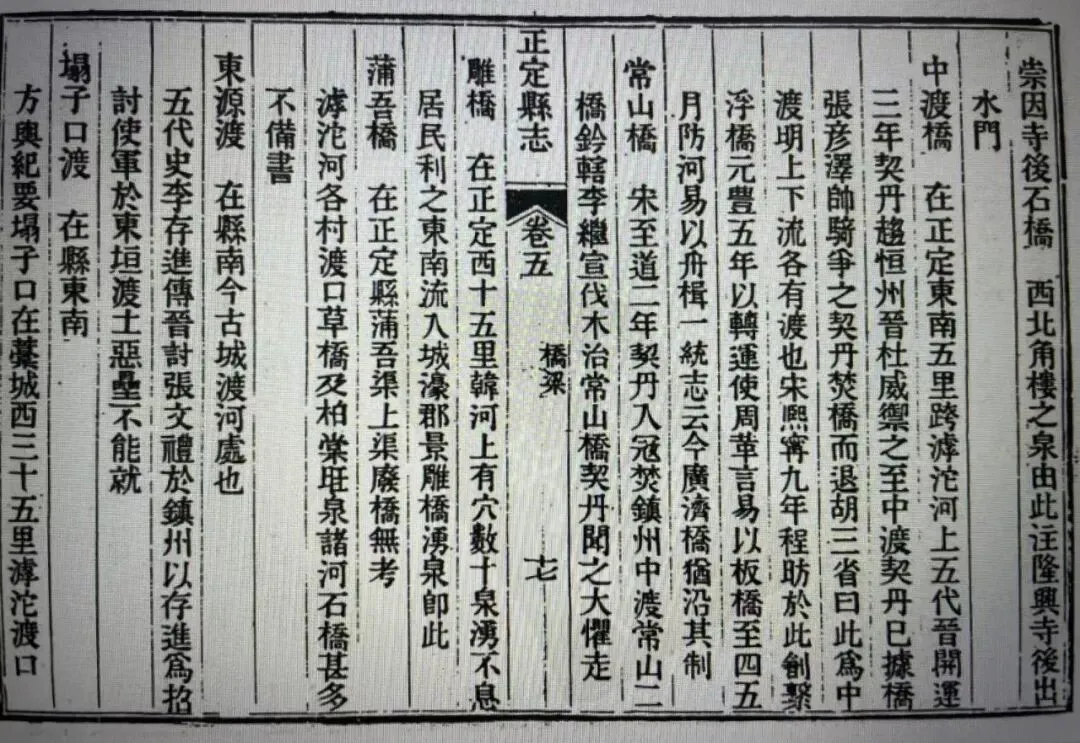 崇因寺後石橋　西北角樓之泉由此注隆興寺後出
水門
中渡橋　在正定東南五里跨滹沱河上五代晉開運
三年契丹趨恒州晉杜威禦之至中渡契丹已據橋
張彥澤帥騎爭之契丹焚橋而退胡三省曰此爲中
渡明上下流各有渡也宋熙寧九年程昉於此創繫
浮橋元豐五年以轉運使周革言易以板橋至四五
月防河易以舟楫一統志云今廣濟橋猶沿其制
常山橋　宋至道二年契丹入寇焚鎮州中渡常山二
橋鈐轄李繼宣伐木治常山橋契丹聞之大懼走
正定縣志
卷五
橋梁
十七
雕橋　在正定西十五里韓河上有穴數十泉湧不息
居民利之東南流入城濠郡景雕橋湧泉卽此
蒲吾橋　在正定縣蒲吾渠上渠廢橋無考
滹沱河各村渡口草橋及柏棠旺泉諸河石橋甚多
不備書
東源渡　在縣南今古城渡河處也
五代史李存進傳晉討張文禮於鎮州以存進爲招
討使軍於東垣渡土惡壘不能就
塌子口渡　在縣東南
方輿紀要塌子口在藁城西三十五里滹沱渡口